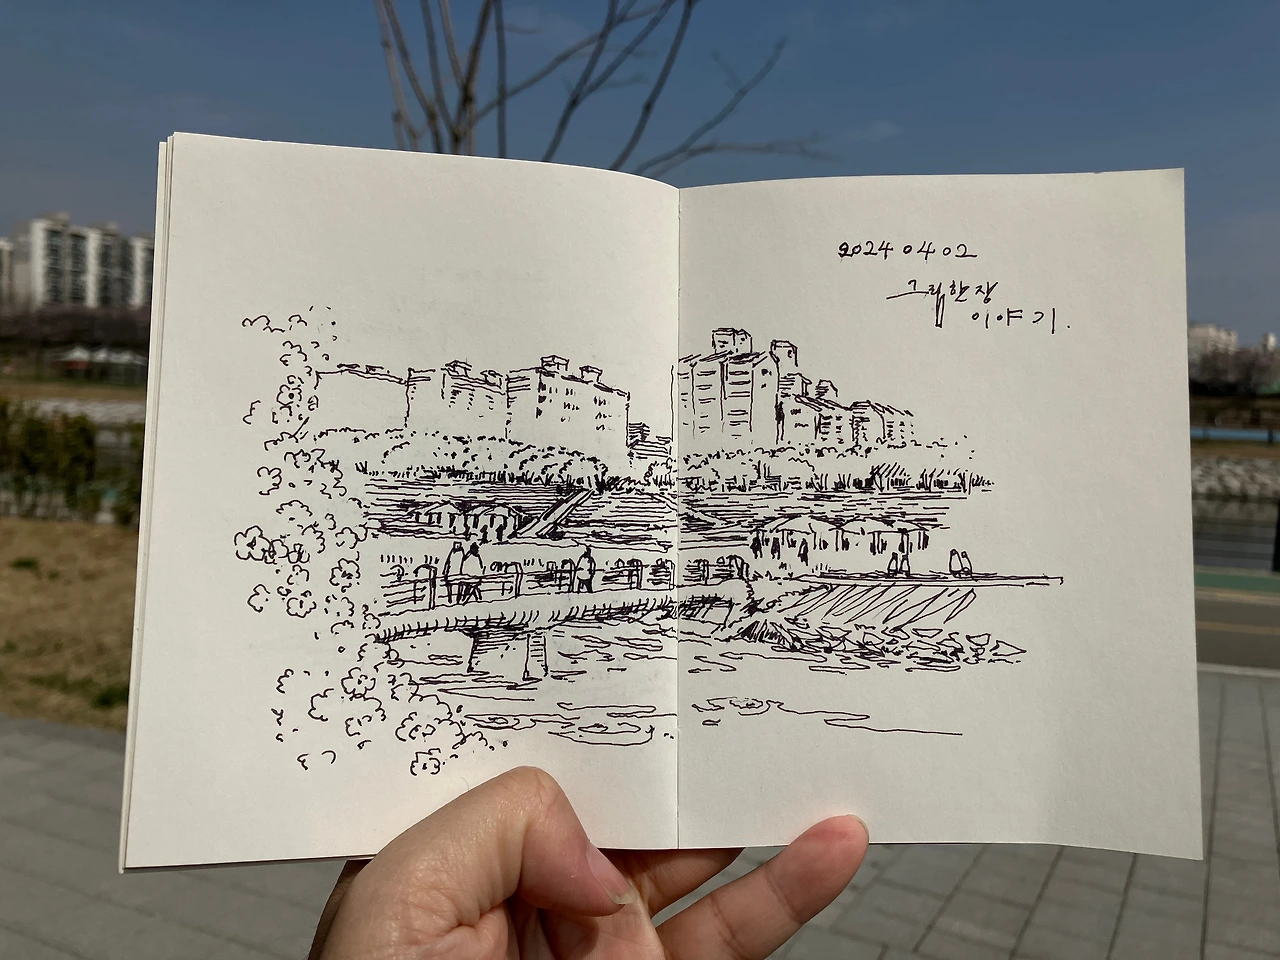 2024 04 02
그림한장
이야기.